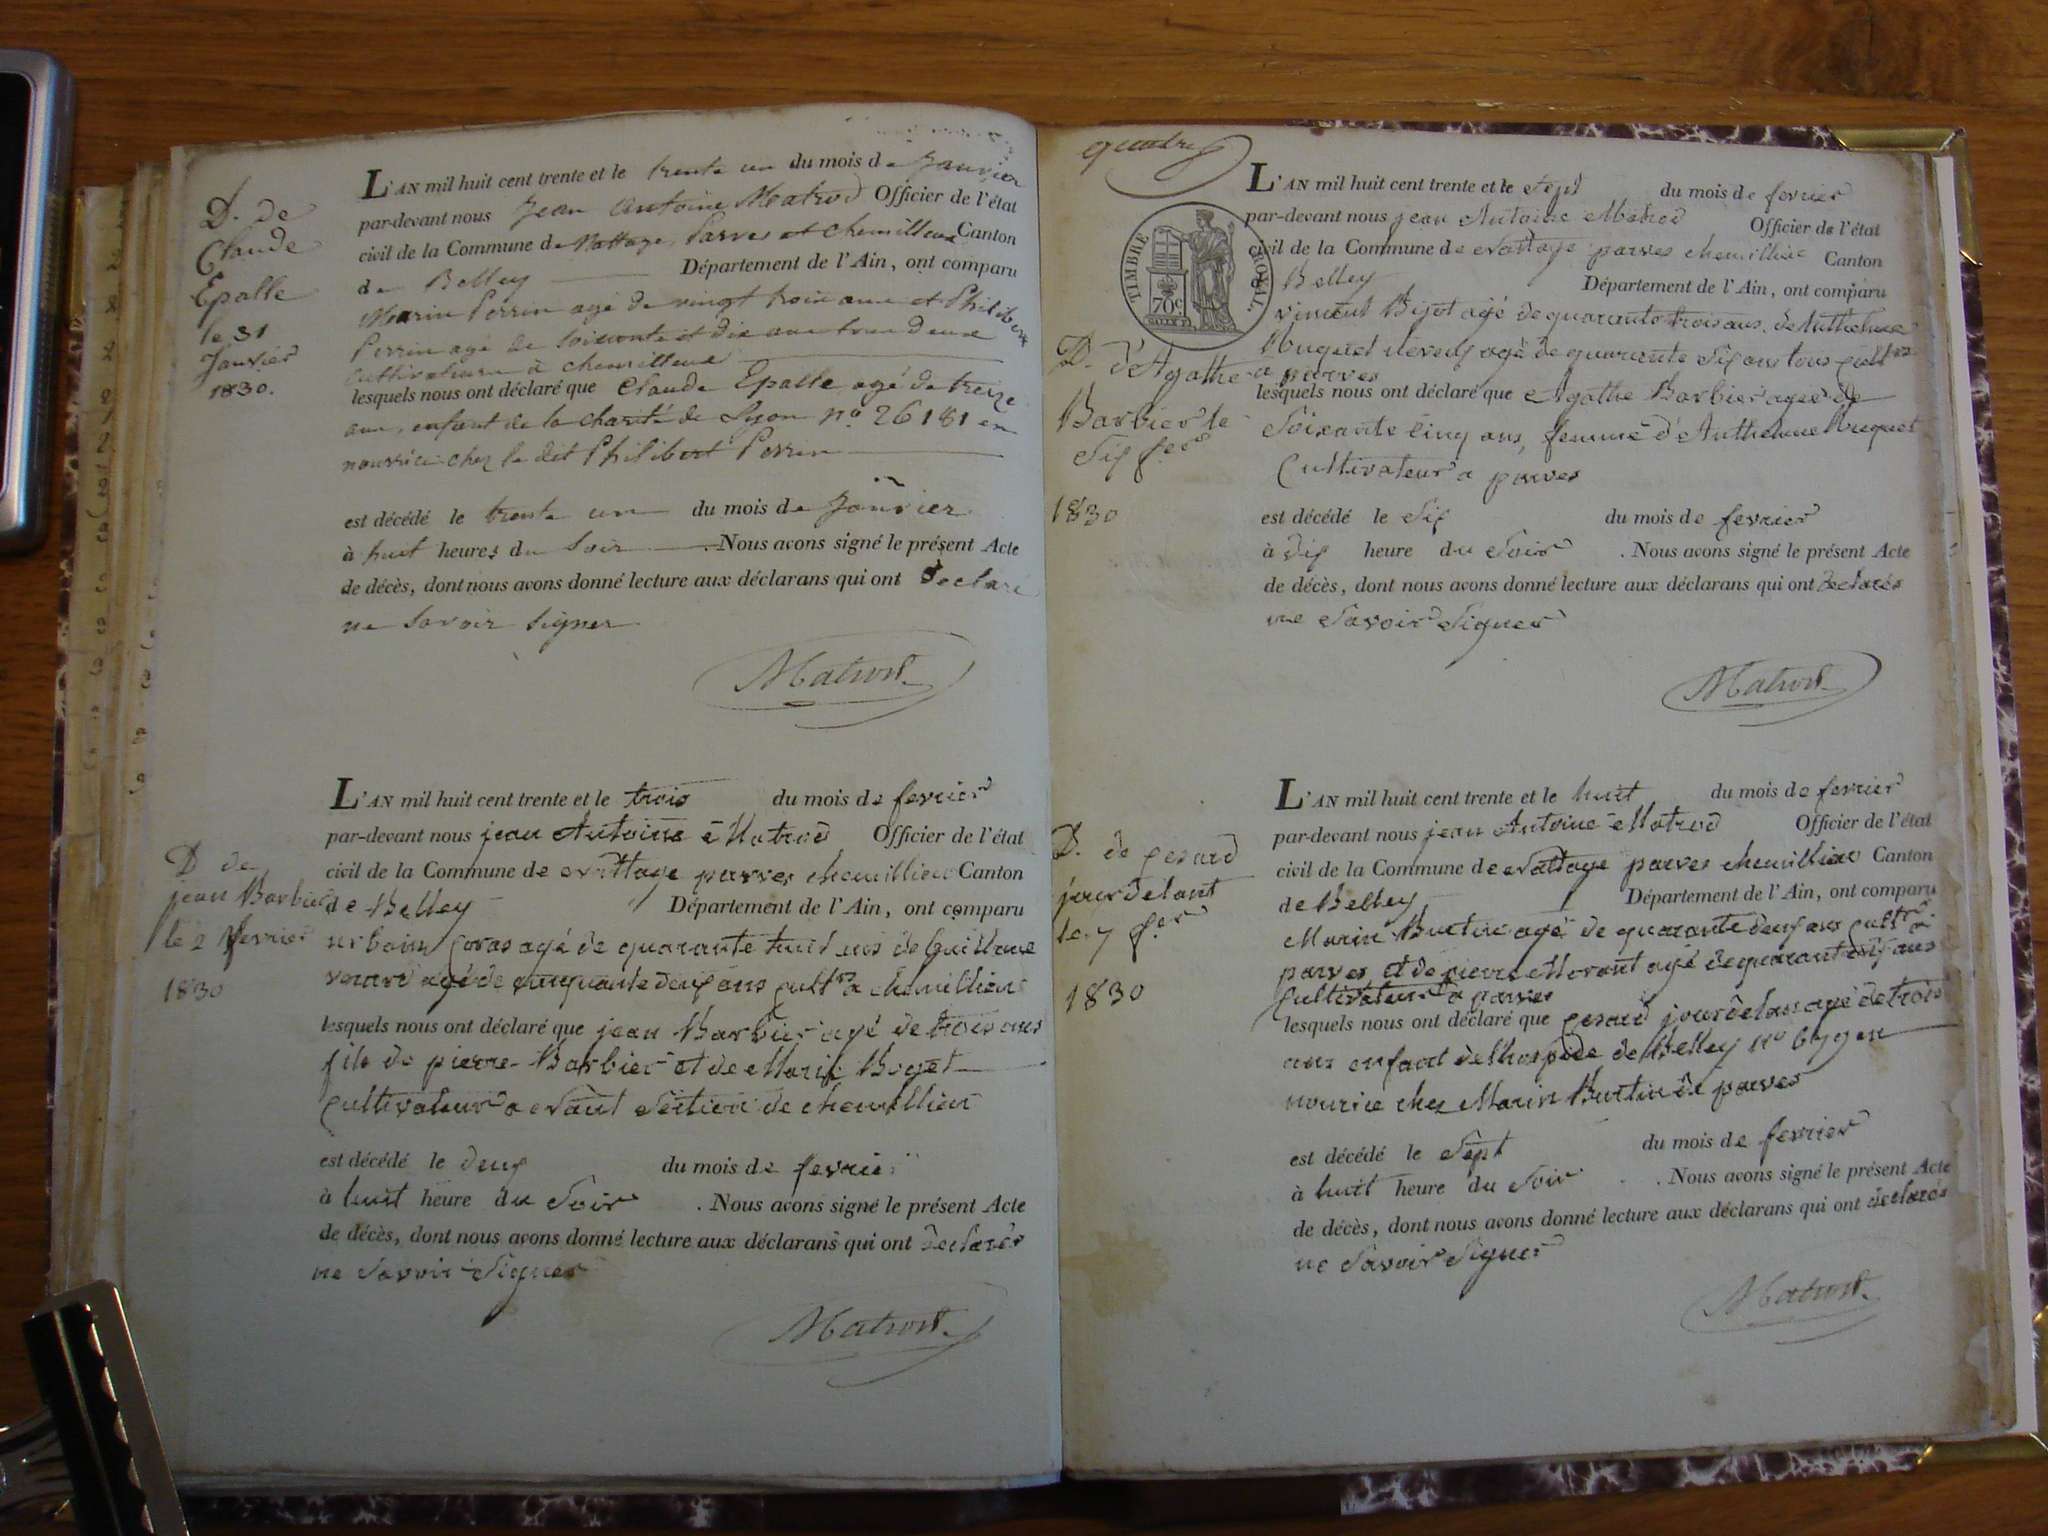 D. de
Claude
Epalle
le 31
Janvier
1830.
L'AN mil huit cent trente et le trente un du mois de Janvier
par-devant nous Jean Antoine Matrod Officier de l'état
civil de la Commune de Nattage, Parves et chemillieu Canton
de Belley Département de l'Ain, ont comparu
Marin Perrin agé de vingt trois ans et Philibert
Perrin agé de soisante et dix ans tous deux
cultivateurs à chemillieu
lesquels nous ont déclaré que Claude Epalle agé de treize
ans, enfant de la charité de Lyon no. 26181 en
nourrice chez le dit Philibert Perrin
est décédé le trente un du mois de Janvier
à huit heures du soir . Nous avons signé le présent Acte
de décès, dont nous avons donné lecture aux déclarans qui ont declaré
ne savoir signer
Matrod
D de
jean Barbier
le 2 fevrier
1830
L'AN mil huit cent trente et le trois du mois de fevrier
par-devant nous jean Antoine Matrod Officier de l'état
civil de la Commune de Nattage parves chemillieu Canton
de Belley Département de l'Ain, ont comparu
urbain agé de quarante huit ans de Guillaume
agé de cinquante deux ans cultr a chemillieu
lesquels nous ont déclaré que jean Barbier agé de trois ans
fils de pierre Barbier et de Marie Boget
cultivateur a de chemillieu
est décédé le deux du mois de fevrier
à huit heure du soir . Nous avons signé le présent Acte
de décès, dont nous avons donné lecture aux déclarans qui ont declarés
ne savoir signer
Matrod
quatre
TIMBRE ROYAL.
70c
L'AN mil huit cent trente et le sept du mois de fevrier
par-devant nous jean Antoine Matrod Officier de l'état
civil de la Commune de Nattage parves chemillieu Canton
Belley Département de l'Ain, ont comparu
vincent Bijot agé de quarante trois ans de Anthelme
Huguet neveux agé de quarante six ans tous cultrs
a parves
D. d'Agathe
Barbier le
six fer
1830
lesquels nous ont déclaré que Agathe Barbier agés de
soixante cinq ans, femme d'Anthelme Huguet
cultivateur a parves
est décédé le six du mois de fevrier
à dix heure du soir . Nous avons signé le présent Acte
de décès, dont nous avons donné lecture aux déclarans qui ont declarés
ne savoir signer
Matrod
D. de gerard
jourdelant
le 7 fer
1830
L'AN mil huit cent trente et le huit du mois de fevrier
par-devant nous jean Antoine Matrod Officier de l'état
civil de la Commune de Nattage parves chemillieu Canton
de Belley Département de l'Ain, ont comparu
Marin Burtin agé de quarante deux ans cultr a
parves et de pierre Morant agé de quarant six ans
cultivateur a parves
lesquels nous ont déclaré que gerard jourdelan agé de trois
ans enfant de l'hospice de Belley no en
nourice chez Marin Burtin de parves
est décédé le sept du mois de fevrier
à huit heure du soir . Nous avons signé le présent Acte
de décès, dont nous avons donné lecture aux déclarans qui ont declarés
ne savoir signer
Matrod